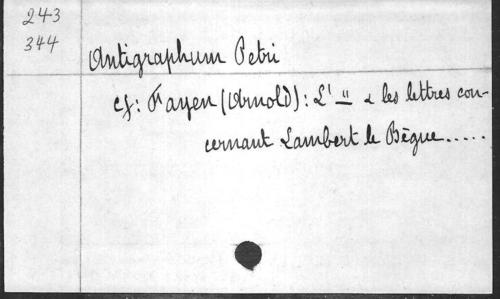 243
344
Antigraphum Petri
cf: Fayen (Arnold): L' " & les lettres con-
cernant Lambert le Bègue.....